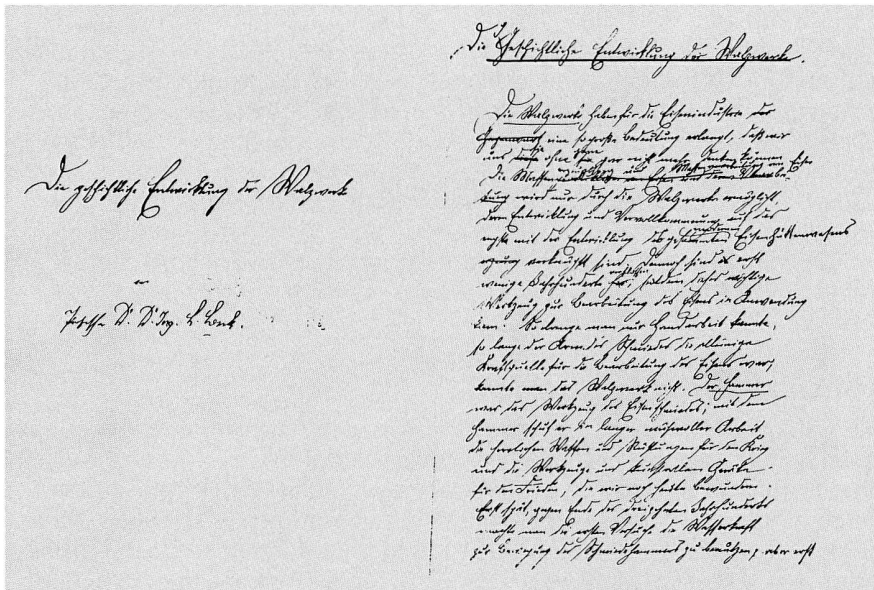 Die geschichtliche Entwicklung der Walzwerke
von
Professor Dr. Dr. Ing. L. Beck.
Die Geschichtliche Entwicklung der Walzwerke.
Die Walzwerke haben für die Eisenindustrie der
Gegenwart eine so große Bedeutung erlangt, daß wir
uns diese ohne sie gar nicht mehr denken können
Die Massenerzeugung und Massenverarbeitung von Eisen
wird nur durch die Walzwerke ermöglicht,
deren Entwicklung und Vervollkommnung auf das
engste mit der Entwicklung des gesammten modernen Eisenhüttenwesens
verknüpft sind. Dennoch sind es erst
wenige Jahrhunderte her, seitdem dieses wichtige
Werkzeug zur Bearbeitung des Eisens in Anwendung
kam. So lange man nur Handarbeit kannte,
so lange der Arm des Schmiedes die alleinige
Kraftquelle für die Bearbeitung des Eisens war,
kannte man das Walzwerk nicht. Der Hammer
war das Werkzeug des Eisenschmiedes; mit dem
Hammer schuf er in langer mühevoller Arbeit
die herrlichen Waffen und Rüstungen für den Krieg
und die Werkzeuge und kunstvollen Geräte
für den Frieden, die wir noch heute bewundern.
Erst spät, gegen Ende des dreizehnten Jahrhunderts
machte man die ersten Versuche die Wasserkraft
zur Bewegung des Schmiedehammers zu benutzen, aber erst